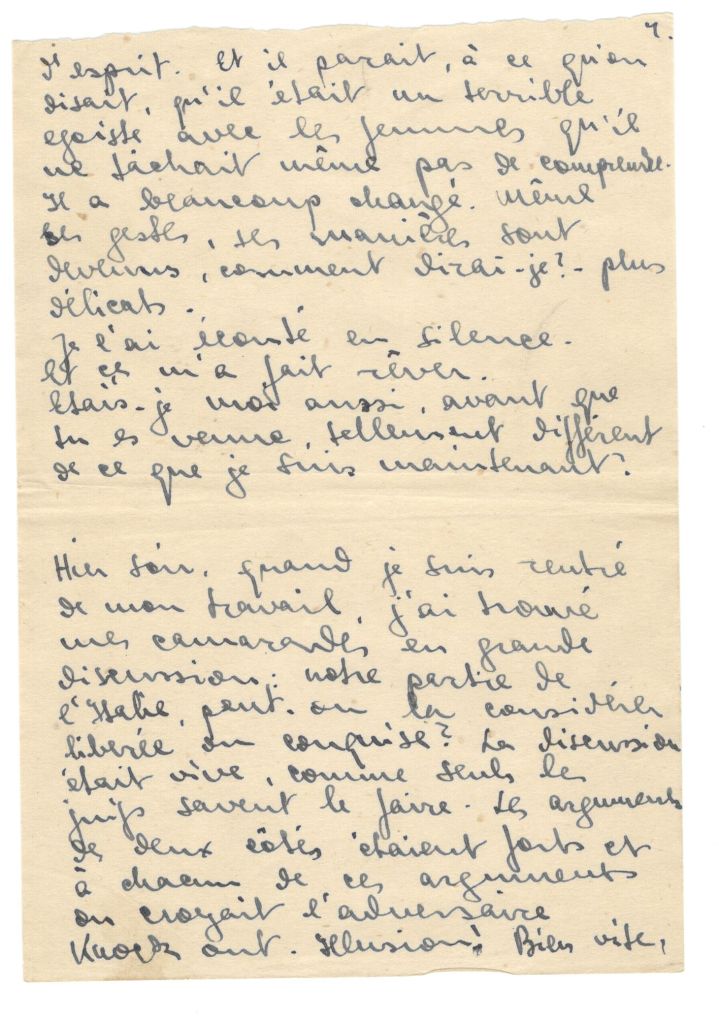 4.
d'esprit. Et il parait, à ce qu'on
disait, qu'il était un terrible
egoiste avec les femmes qu'il
ne tâchait même pas de comprendre.
Il a beaucoup changé. Même
ses gestes, ses manières sont
devenus, comment dirai-je? - plus
délicats.
Je l'ai écouté en silence.
Et ça m'a fait rêver.
Etais-je moi aussi, avant que
tu es venue, tellement différent
de ce que je suis maintenant?
Hier soir, quand je suis rentré
de mon travail, j'ai trouvé
mes camarades en grande
discussion: notre partie de
l'Italie, peut-on la considérer
liberée ou conquise? La discussion
était vive, comme seuls les
juifs savent le faire. Les arguments
de deux côtés étaient forts et
à chacun de ces arguments
on croyait l'adversaire
Knock out. Illusion! Bien vite,